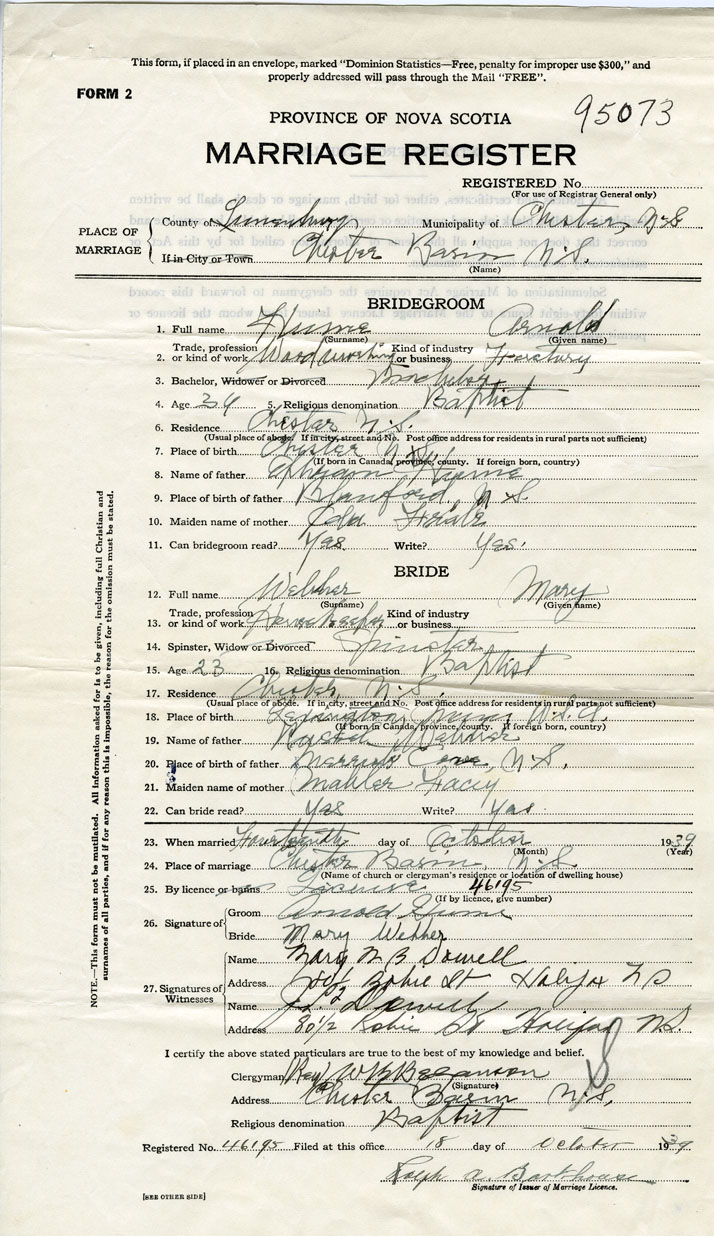 This form, if placed in an envelope, marked “Dominion Statistics—Free, penalty for improper use $300,” and
properly addressed will pass through the Mail “FREE”.
FORM 2
95073
PROVINCE OF NOVA SCOTIA
MARRIAGE REGISTER
REGISTERED No.
(For use of Registrar General only)
PLACE OF MARRIAGE
County of Lunenburg Municipality of Chester, N.S
If in City or Town Chester Basin N.S.
(Name)
BRIDEGROOM
1. Full name Hume Arnold
(Surname) (Given name)
2. Trade, profession or kind of work Woodworking Kind of industry or business Forestry
3. Bachelor, Widower or Divorced Bachelor
4. Age 34 5. Religious denomination Baptist
6. Residence Chester N.S.
(Usual place of abode. If in city, street and No. Post office address for residents in rural parts not sufficient)
7. Place of birth Chester N.S.
(If born in Canada, province, county. If foreign born, country)
8. Name of father Ephriam Hume
9. Place of birth of father Blanford, N.S.
10. Maiden name of mother
11. Can bridegroom read? Yes Write? Yes.
BRIDE
12. Full name Webber Mary
(Surname) (Given name)
13. Trade, profession or kind of work Housekeeper Kind of industry or business
14. Spinster, Widow or Divorced Spinster
15. Age 23 16. Religious denomination Baptist
17. Residence Chester, N.S.
(Usual place of abode. If in city, street and No. Post office address for residents in rural parts not sufficient)
18. Place of birth Lexington, Mass U.S.A.
(If born in Canada, province, county. If foreign born, country)
19. Name of father
20. Place of birth of father Marriots Cove, N.S.
21. Maiden name of mother Facey
22. Can bride read? Yes Write? Yes
23. When married Fourteenth day of October 1939
(Month) (Year)
24. Place of marriage Chester Basin, N.S.
(Name of church or clergyman's residence or location of dwelling house)
25. By licence or banns License 46195
(If by licence, give number)
26. Signature of Groom Arnold Hume
Bride Mary Webber
27. Signatures of Witnesses
Name Mary M B Dowell
Address 80½ Robie St Halifax N S
Name Dowell
Address 80½ Robie St Halifax N.S.
I certify the above stated particulars are true to the best of my knowledge and belief.
Clergyman Rev. W B Bezanson
(Signature)
Address Chester Basin N.S.
Religious denomination Baptist
Registered No. 46195 Filed at this office 18 day of October 1939
Ralph N. Barkhouse
Signature of Issuer of Marriage Licence.
[SEE OTHER SIDE]
NOTE.—This form must not be mutilated. All information asked for is to be given, including full Christian and
surnames of all parties, and if for any reason this is impossible, the reason for the omission must be stated.